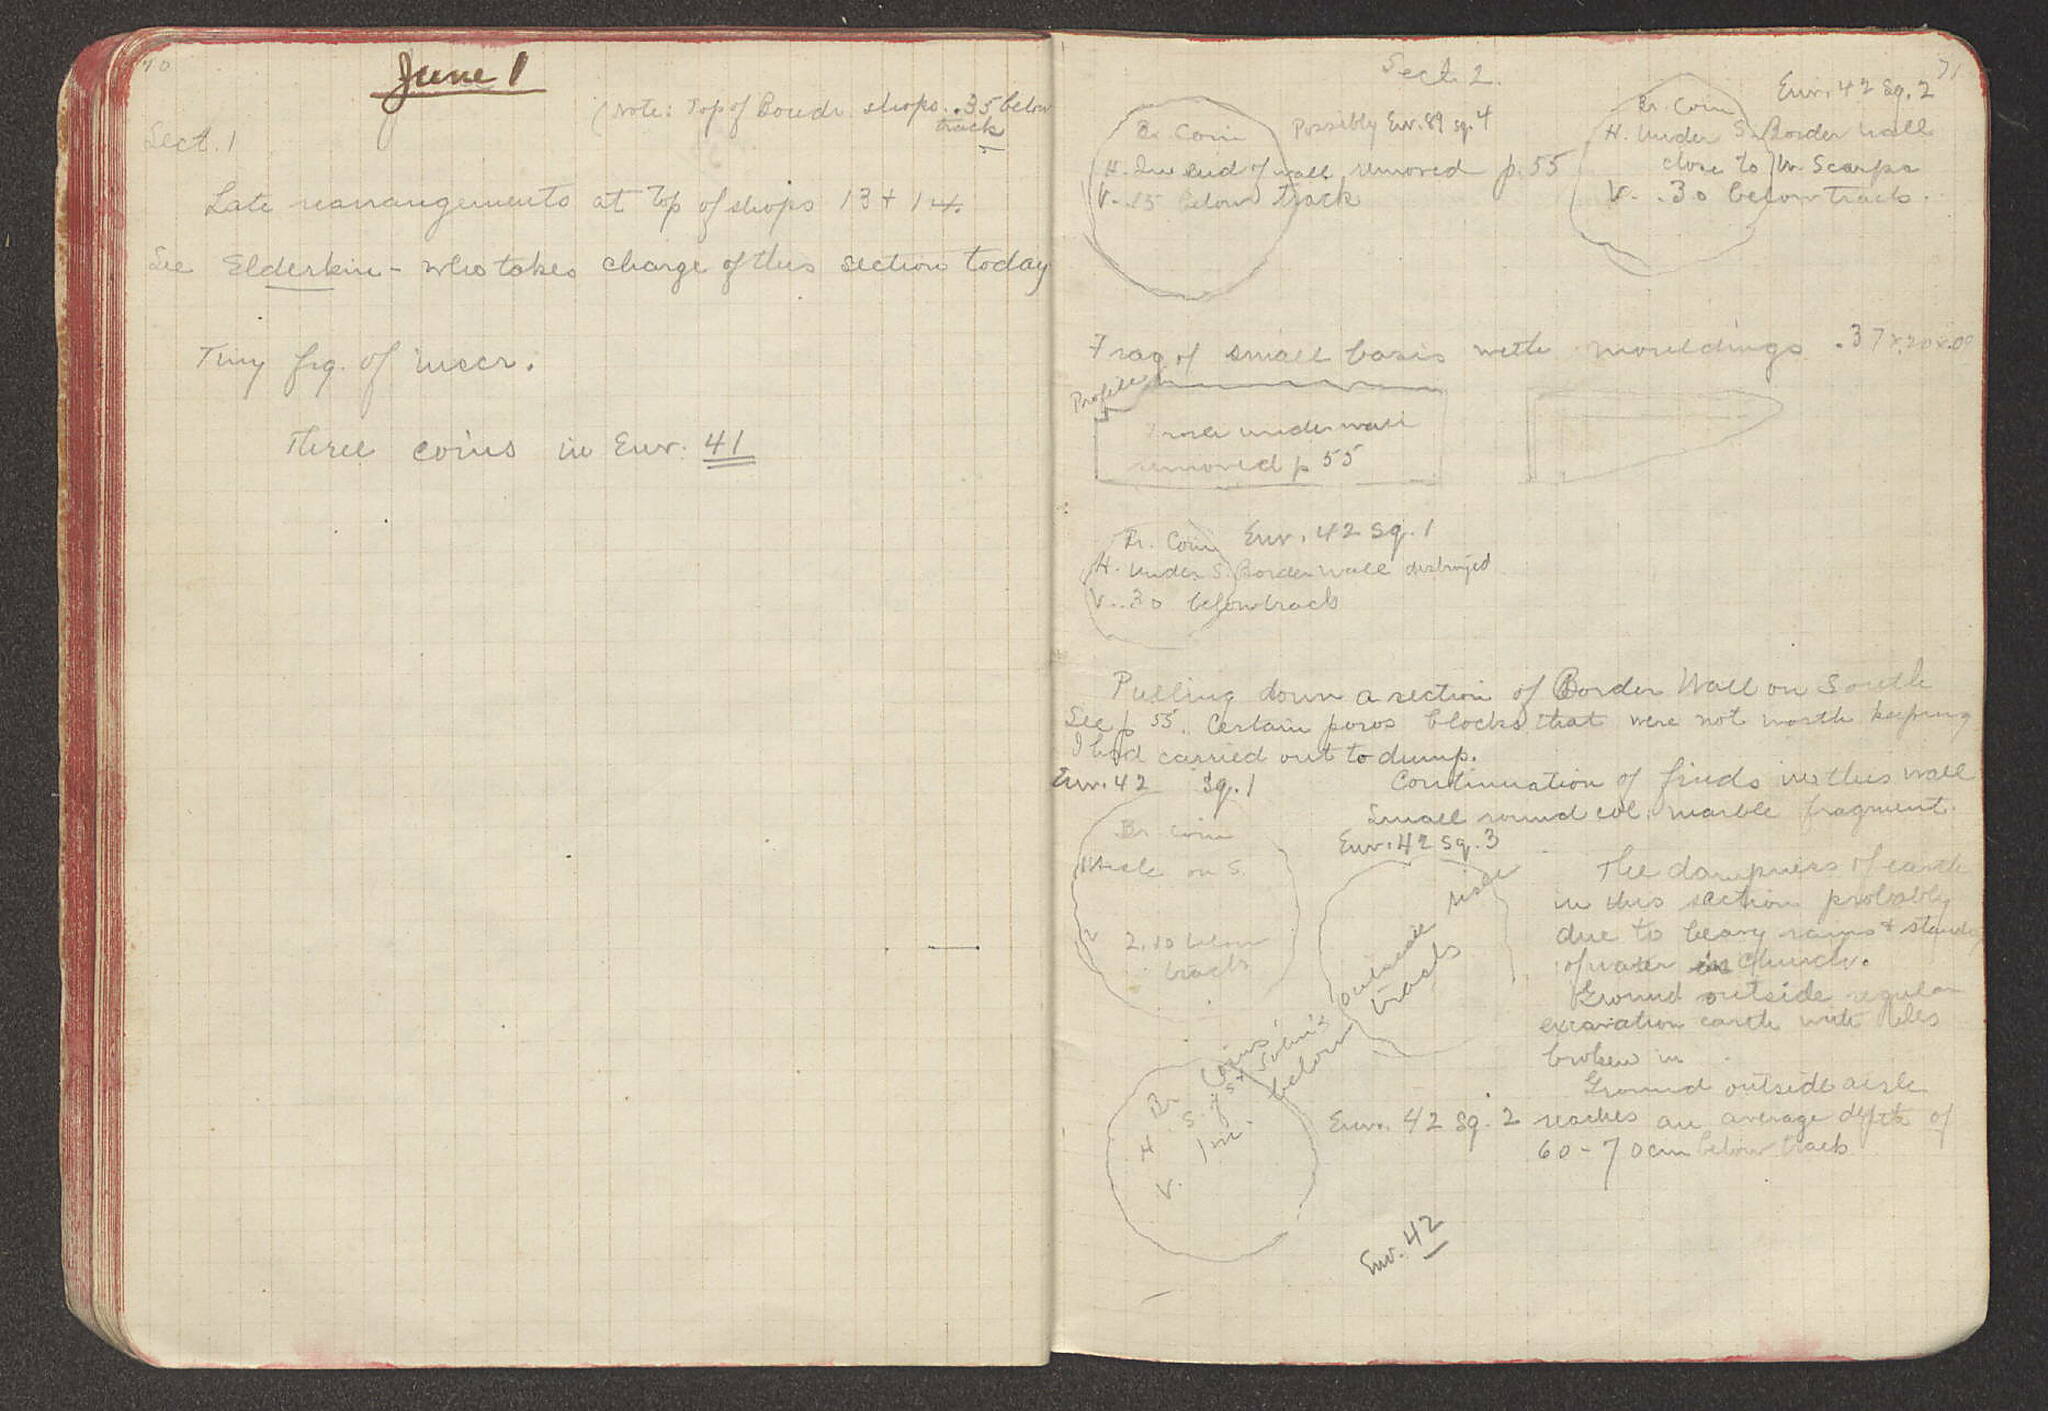 70
June 1
(Note: Top of Boudr. shops .35 below
track
Sect. 1
Late rearrangements at Top of shops 13 + 14.
See Elderkin - who takes charge of this section today
Tiny frg. of inscr.
Three coins in Env. 41
71
Sect. 2.
Br. Coin Possibly Env. 89 sq. 4
H. end of wall removed p. 55
V. .15 below track
Env. 42 Sq. 2
Br. Coin
H. Under S. Border wall
close to Mr. Scarpa
V. .30 below track.
Frag of small basis with mouldings .37 x .20 x
Profile
From under wall
removed p 55
Br. Coin Env. 42 Sq. 1
H. Under S. Border wall destroyed
V. .30 below track
Pulling down a section of Border Wall on South
See p 55. Certain poros blocks that were not worth keeping
I had carried out to dump.
Continuation of finds in this wall
Small round col. marble fragment.
Env. 42 Sq. 1
Br. coin
Aisle on S.
V 2.10 below
track
Env. 42 Sq. 3
Br Coins outside aisle
H S. of
V. 1 m. below track
Env. 42 Sq. 2
Env. 42
The dampness of earth
in this section probably
due to heavy rains + standg
of water in Church.
Ground outside regular
excavation earth with tiles
broken in
Ground outside aisle
reaches an average depth of
60-70 cm below track